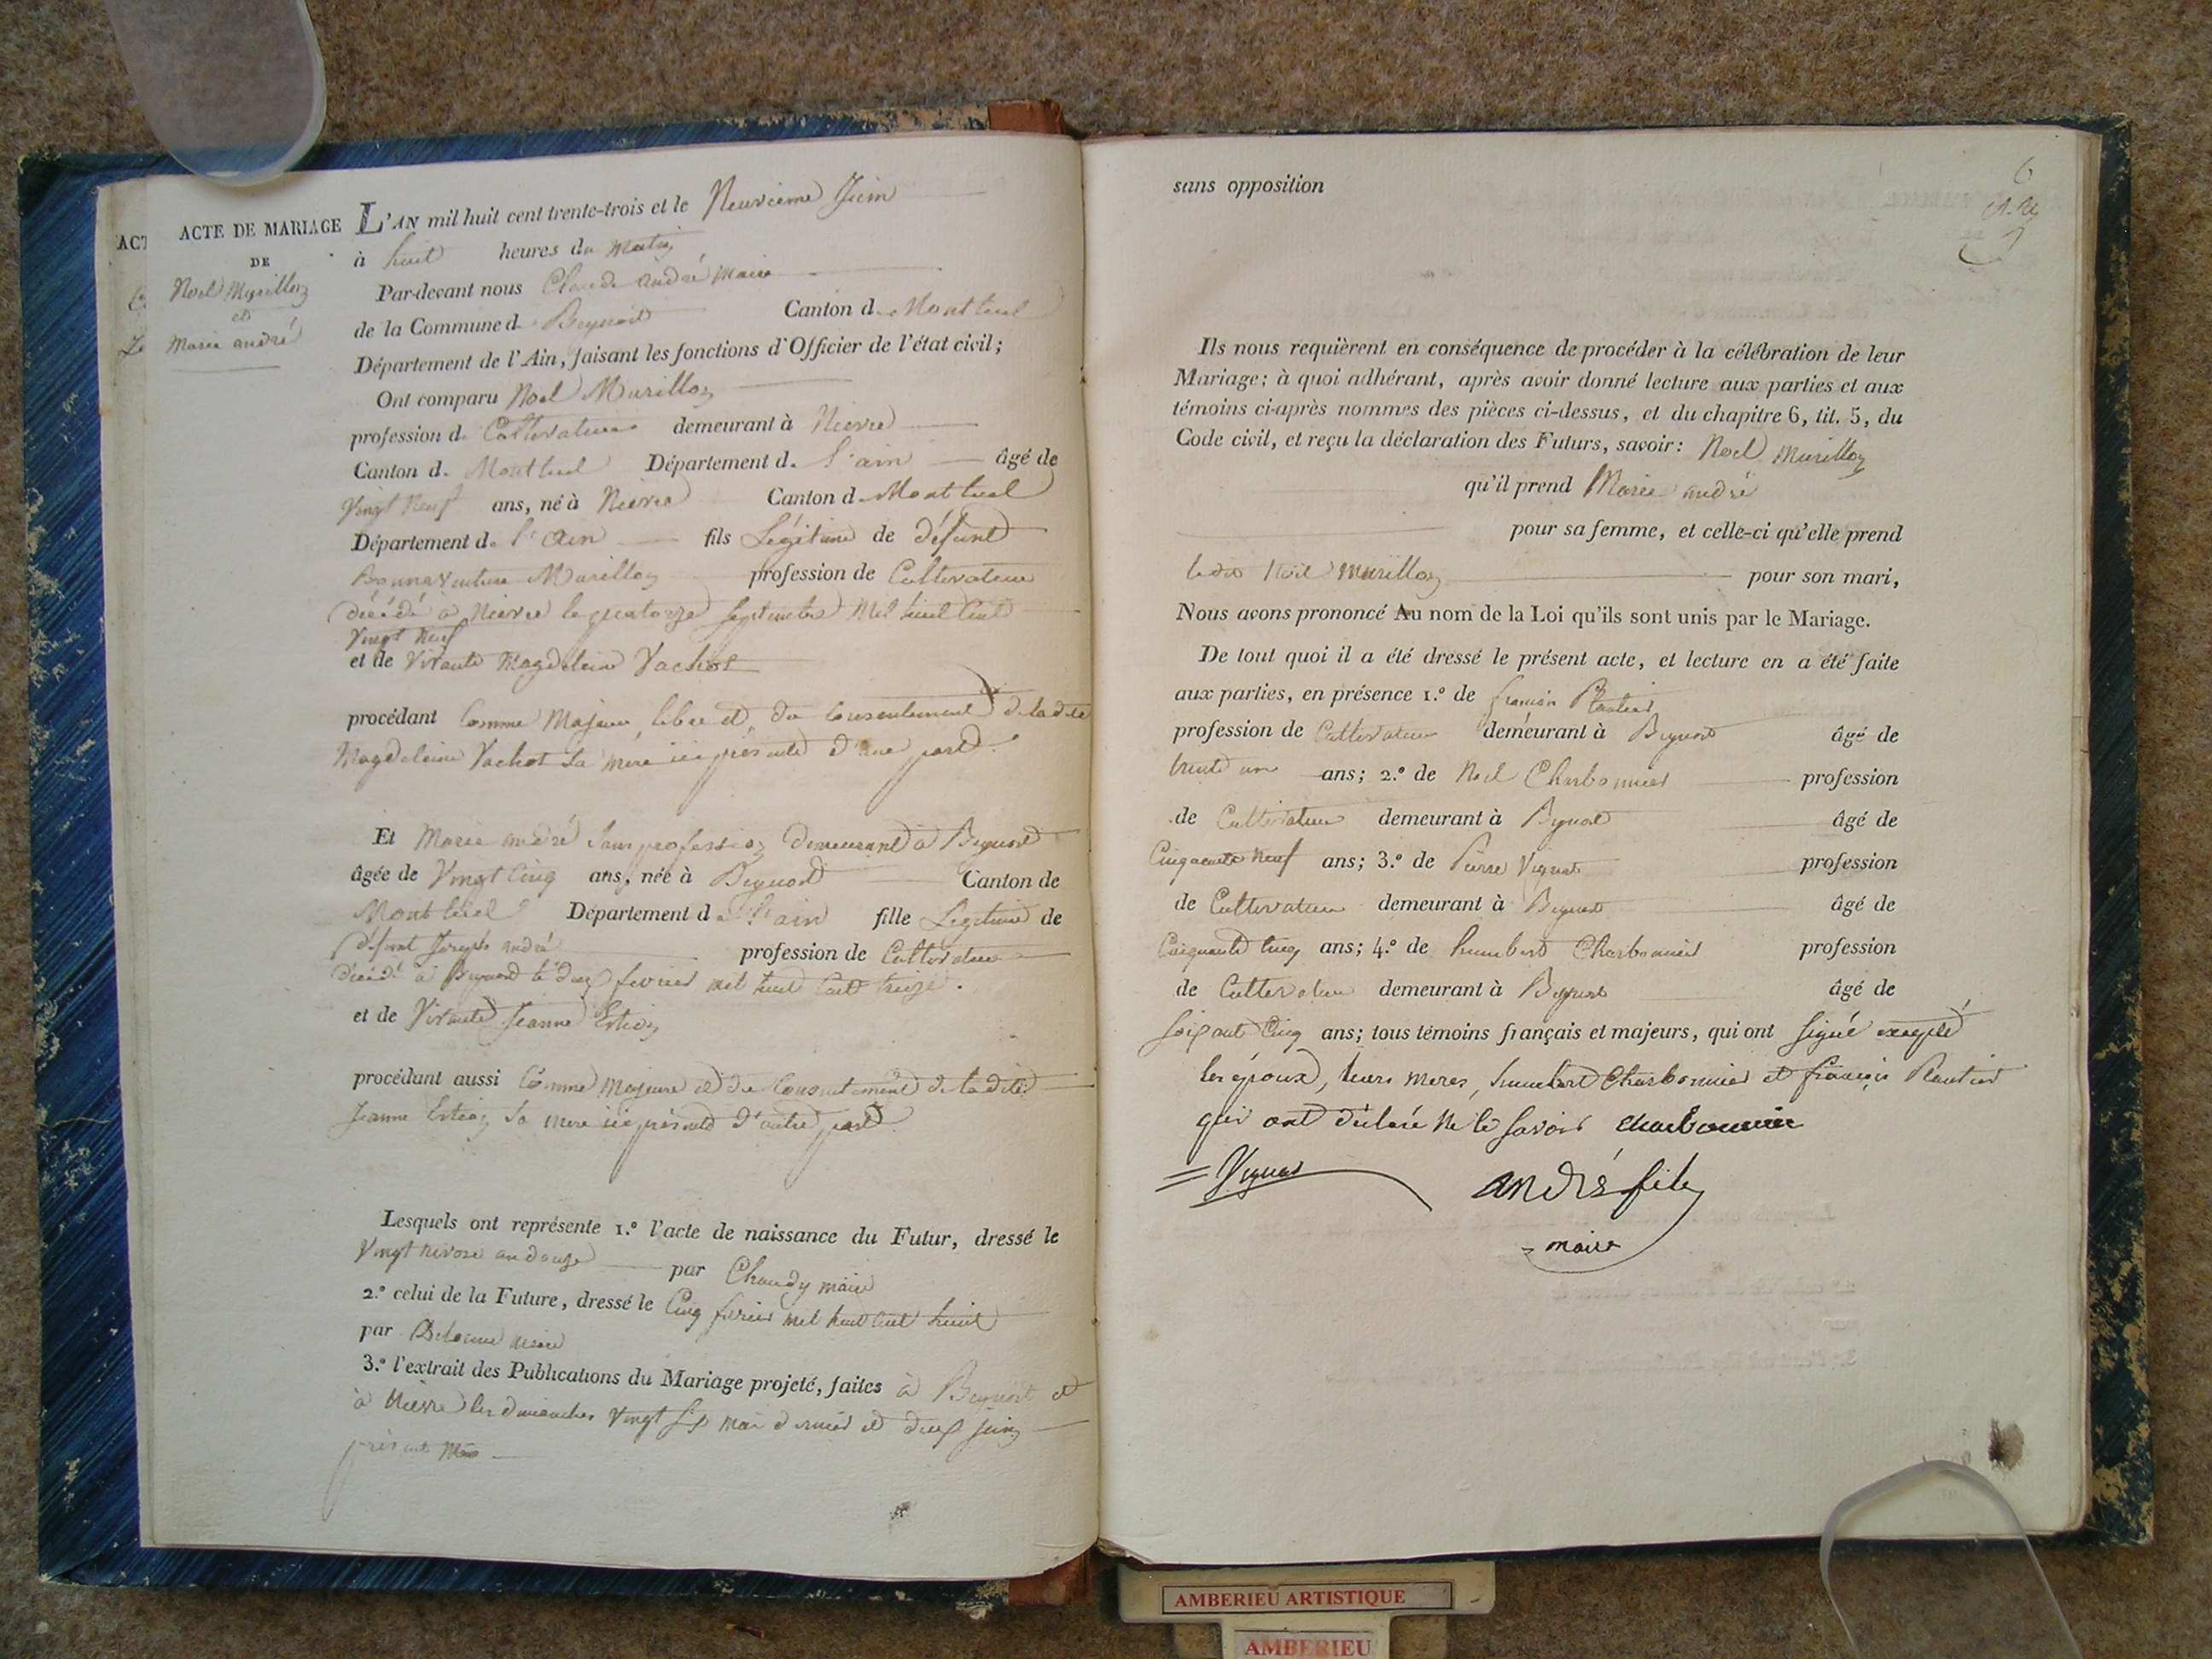 ACT
ACTE DE MARIAGE
DE
Noel Murillon
et
Marie andré
L'AN mil huit cent trente-trois et le Neuvieme Juin
à huit heures du Matin
Par-devant nous Claude andré Maire
de la Commune d. Beynost Canton d. Montluel
Département de l'Ain, faisant les fonctions d'Officier de l'état civil;
Ont comparu Noel Murillon
profession d. Cultivateur demeurant à Nievre
Canton d. Montluel Département d. l'ain âgé de
Vingt Neuf ans, né à Nievre Canton d. Montluel
Département d. l'ain fils Légitime de défunt
Bonnaventure Murillon profession de Cultivateur
décédé à Nievre le quatorze septembre Mil huit Cent
Vingt Neuf
et de Vivante Magdeleine Vachot
procédant Comme Majeur, libre et du Consentement de ladite
Magdeleine Vachot sa mere ici présente d'une part.
Et Marie andré Sans profession demeurant à Beynost
âgée de Vingt Cinq ans, née à Beynost Canton de
Montluel Département d. l'ain fille Légitime de
défunt Joseph andré profession de Cultivateur
décédé à Beynost le deux fevrier mil huit Cent treize.
et de Vivante Jeanne Estion
procédant aussi Comme Majeure et du Consentement de ladite
Jeanne Estion sa mere ici présente d'autre part
Lesquels ont représente 1.º l'acte de naissance du Futur, dressé le
Vingt nivose an douze par Chaudy maire
2.º celui de la Future, dressé le Cinq fevrier mil huit cent huit
par Delorme maire
3.º l'extrait des Publications du Mariage projeté, faites à Beynost et
à Nievre les dimanches Vingt Six mai dernier et deux juin
présent Mois
6
sans opposition
Ils nous requièrent en conséquence de procéder à la célébration de leur
Mariage; à quoi adhérant, après avoir donné lecture aux parties et aux
témoins ci-après nommes des pièces ci-dessus, et du chapitre 6, tit. 5, du
Code civil, et reçu la déclaration des Futurs, savoir: Noel Murillon
qu'il prend Marie andré
pour sa femme, et celle-ci qu'elle prend
ledit Noël Murillon pour son mari,
Nous avons prononcé Au nom de la Loi qu'ils sont unis par le Mariage.
De tout quoi il a été dressé le présent acte, et lecture en a été faite
aux parties, en présence 1.º de françois Plantier
profession de Cultivateur demeurant à Beynost âgé de
trente un ans; 2.º de Noel Charbonnier profession
de Cultivateur demeurant à Beynost âgé de
Cinquante Neuf ans; 3.º de Pierre Vignat profession
de Cultivateur demeurant à Beynost âgé de
Cinquante Cinq ans; 4.º de humbert Charbonnier profession
de Cultivateur demeurant à Beynost âgé de
Soixante Cinq ans; tous témoins français et majeurs, qui ont signé excepté
les époux, leurs meres, humbert Charbonnier et françois Plantier
qui ont déclaré ne le savoir Charbonnier
Vignat andré fils
maire
AMBERIEU ARTISTIQUE
AMBERIEU